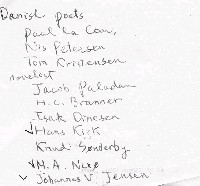 Danish poets
Paul la Cour,
Nis Petersen
Tom Kristensen
novelist
Jacob Paludan
H.C. Branner
Isak Dinesen
✓ Hans Kirk
Knud Sønderby
✓ M.A. Nexø
✓ Johannes V. Jensen